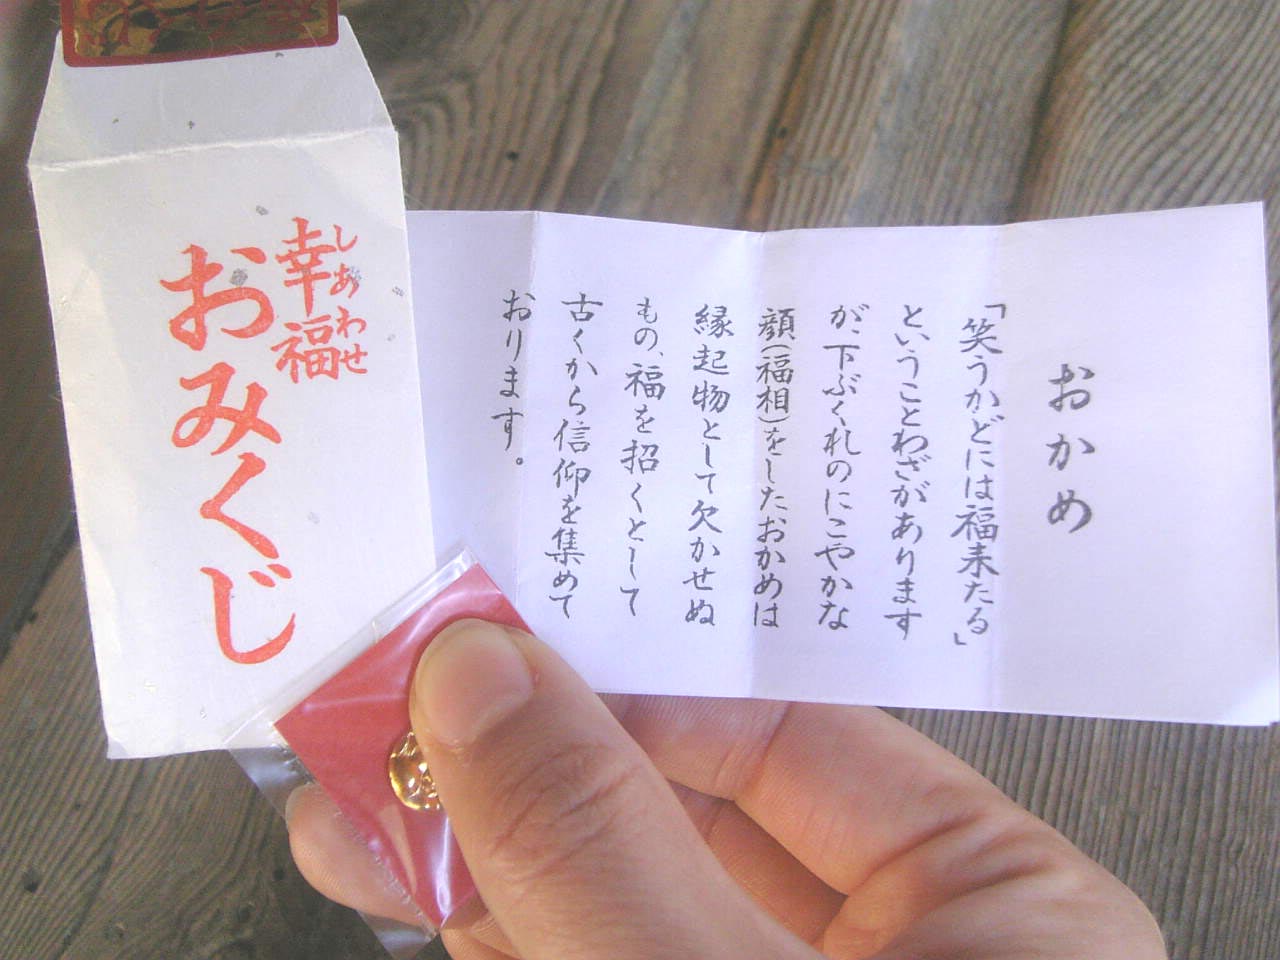 幸福
しあわせ
おみくじ
おかめ
「笑うかどには福来たる」
ということわざがあります
が、下ぶくれのにこやかな
顔(福相)をしたおかめは
縁起物として欠かせぬ
もの、福を招くとして
古くから信仰を集めて
おります。